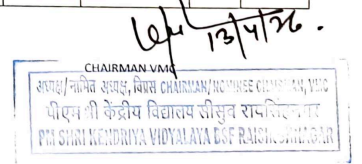 13/4/26.
CHAIRMAN VMC
अध्यक्ष/नामित अध्यक्ष, विप्रस CHAIRMAN/NOMINEE CHAIRMAN, VMC
पीएम श्री केंद्रीय विद्यालय सीसुब रायसिंहनगर
PM SHRI KENDRIYA VIDYALAYA BSF RAISINGHNAGAR